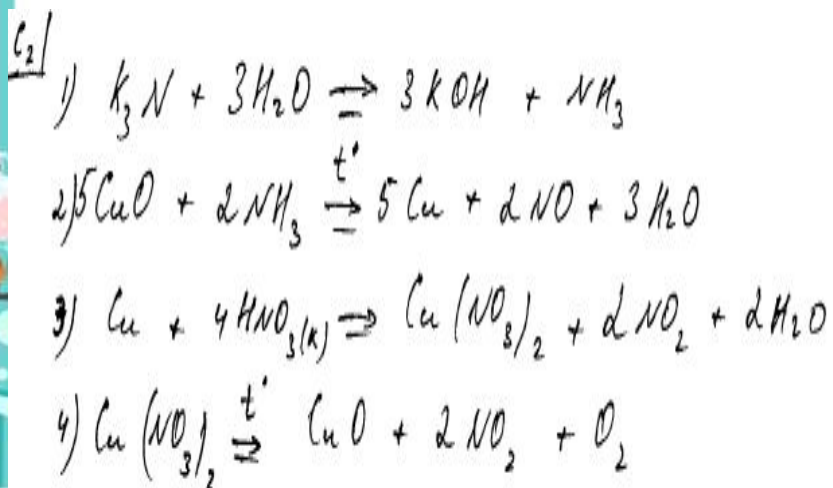 C₂
1) K₃N + 3H₂O ⇒ 3KOH + NH₃
2) 5CuO + 2NH₃ →t° 5Cu + 2NO + 3H₂O
3) Cu + 4HNO₃(к) ⇒ Cu(NO₃)₂ + 2NO₂ + 2H₂O
4) Cu(NO₃)₂ →t° CuO + 2NO₂ + O₂